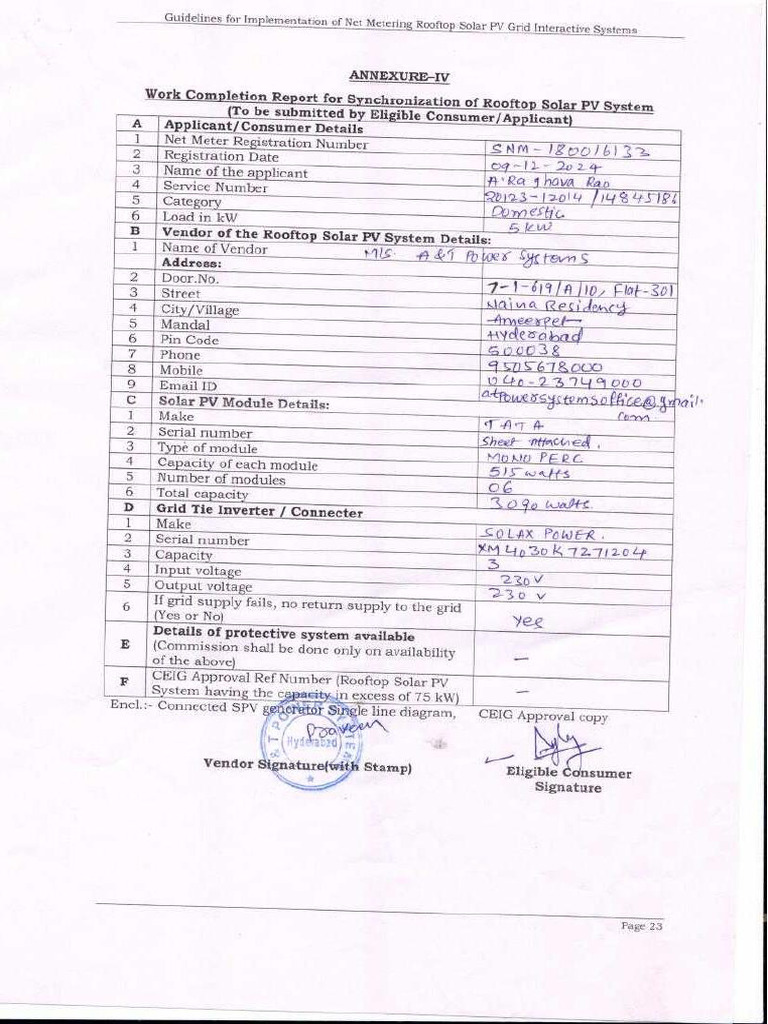 Guidelines for Implementation of Net Metering Rooftop Solar PV Grid Interactive Systems
ANNEXURE–IV
Work Completion Report for Synchronization of Rooftop Solar PV System
(To be submitted by Eligible Consumer/Applicant)
A Applicant/Consumer Details
1 Net Meter Registration Number SNM-180016133
2 Registration Date 09-12-2024
3 Name of the applicant A.Raghava Rao
4 Service Number 20123-12014/14845186
5 Category Domestic
6 Load in kW 5 kW
B Vendor of the Rooftop Solar PV System Details:
1 Name of Vendor M/s. A&T Power Systems
Address:
2 Door.No. 7-1-619/A/10, Flat-301
3 Street Naina Residency
4 City/Village Ameerpet
5 Mandal Hyderabad
6 Pin Code 500038
7 Phone 9505678000
8 Mobile 040-23749000
9 Email ID atpowersystemsoffice@gmail.
com
C Solar PV Module Details:
1 Make TATA
2 Serial number Sheet Attached.
3 Type of module MONO PERC
4 Capacity of each module 515 watts
5 Number of modules 06
6 Total capacity 3090 watts.
D Grid Tie Inverter / Connecter
1 Make SOLAX POWER.
2 Serial number XM4030K7271204
3 Capacity 3
4 Input voltage 230V
5 Output voltage 230 V
6 If grid supply fails, no return supply to the grid
(Yes or No) Yes
E Details of protective system available
(Commission shall be done only on availability
of the above) –
F CEIG Approval Ref Number (Rooftop Solar PV
System having the capacity in excess of 75 kW) –
Encl.:- Connected SPV generator Single line diagram, CEIG Approval copy
Praveen
A & T POWER SYSTEMS
Hyderabad
Vendor Signature(with Stamp)
Eligible Consumer
Signature
Page 23